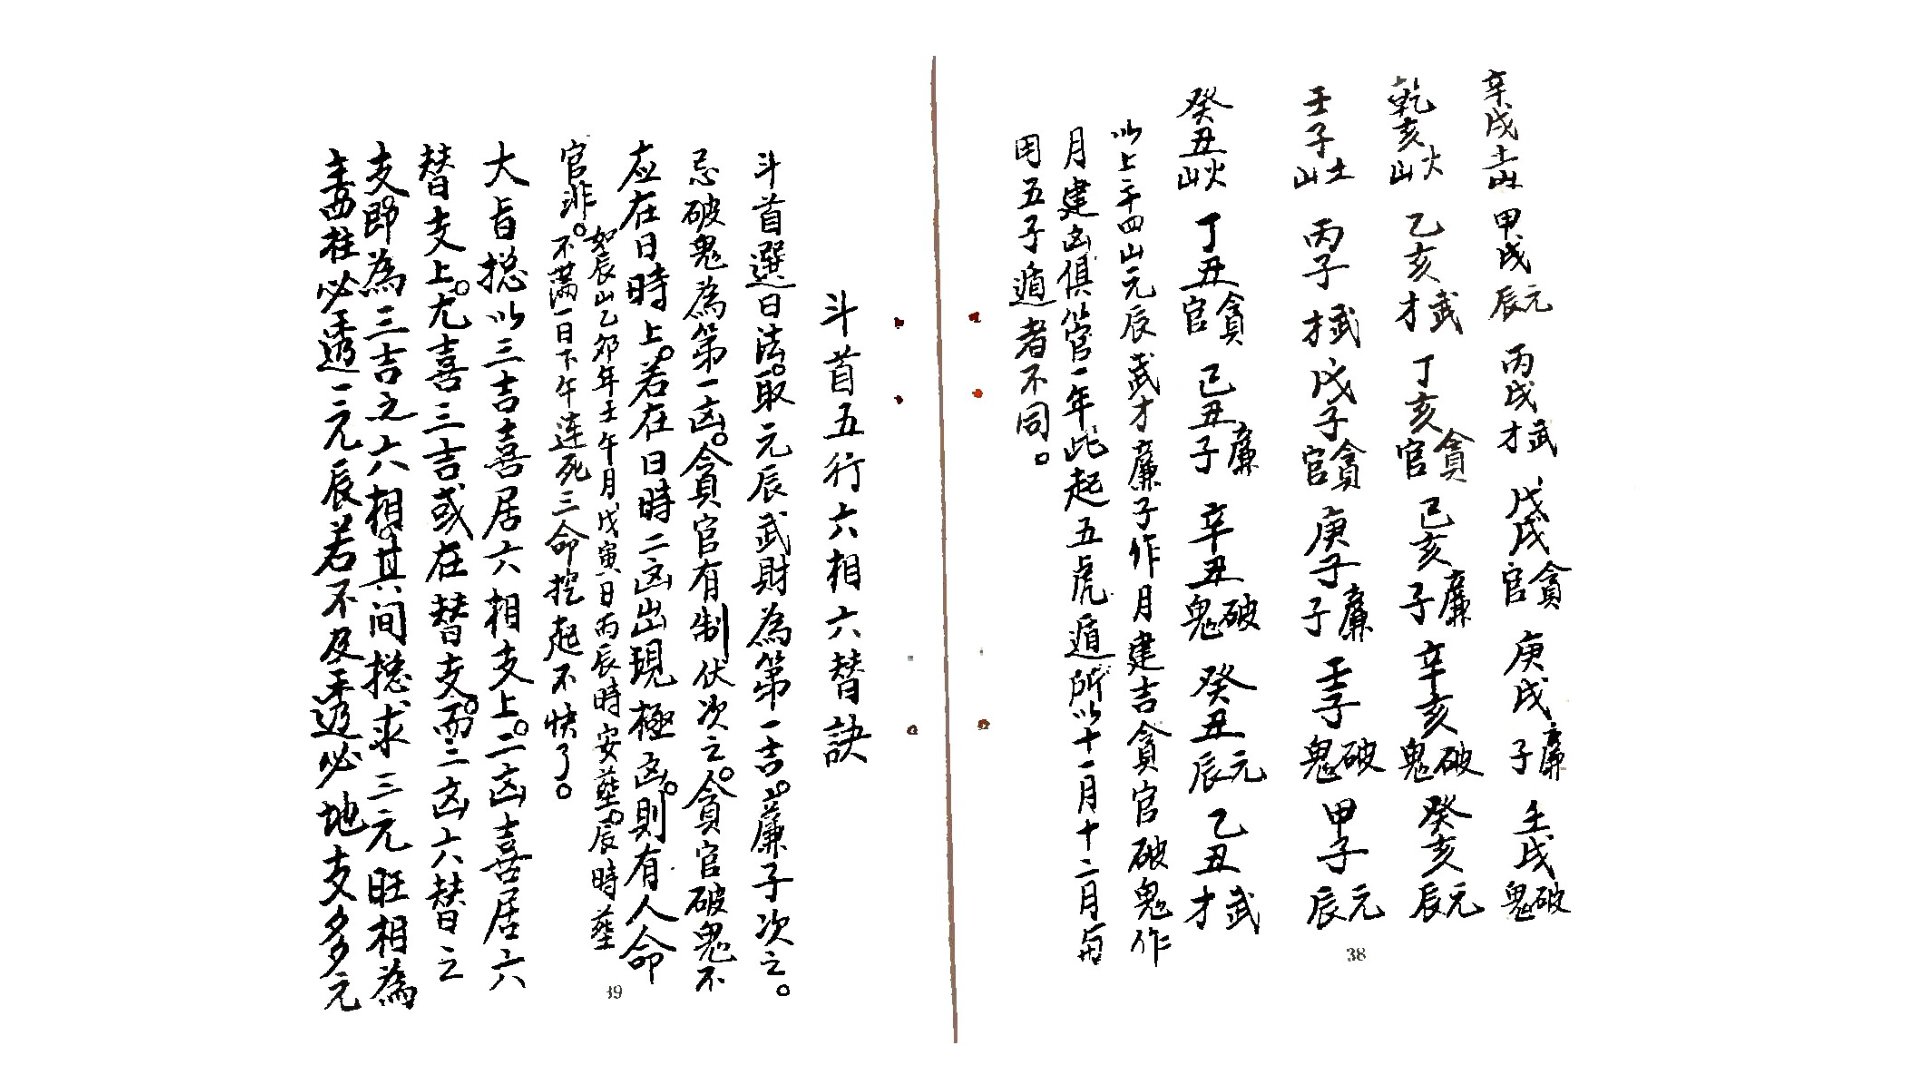 辛戌土山 甲戌元辰 丙戌武才 戊戌貪官 庚戌廉子 壬戌破鬼
乾亥火山 乙亥武才 丁亥貪官 己亥廉子 辛亥破鬼 癸亥元辰
壬子土山 丙子武才 戊子貪官 庚子廉子 壬子破鬼 甲子元辰
癸丑火山 丁丑貪官 己丑廉子 辛丑破鬼 癸丑元辰 乙丑武才
以上二十四山元辰武才廉子作月建吉貪官破鬼作
月建凶俱管一年此起五虎遁所以十一月十二月與
用五子遁者不同。
38
斗首五行六相六替訣
斗首選日法。取元辰武財為第一吉。廉子次之。
忌破鬼為第一凶。貪官有制伏次之。貪官破鬼不
应在日時上。若在日時二凶出現極凶。則有人命
官非。如辰山乙卯年壬午月戊寅日丙辰時安葬。辰時葬
不滿一日下午连死三命挖起不快了。
大旨摠以三吉喜居六相支上。二凶喜居六
替支上。尤喜三吉或在替支。而二凶六替之
支即為三吉之六相。其间摠求三元旺相為
主四柱必透元辰若不及透必地支多元
39